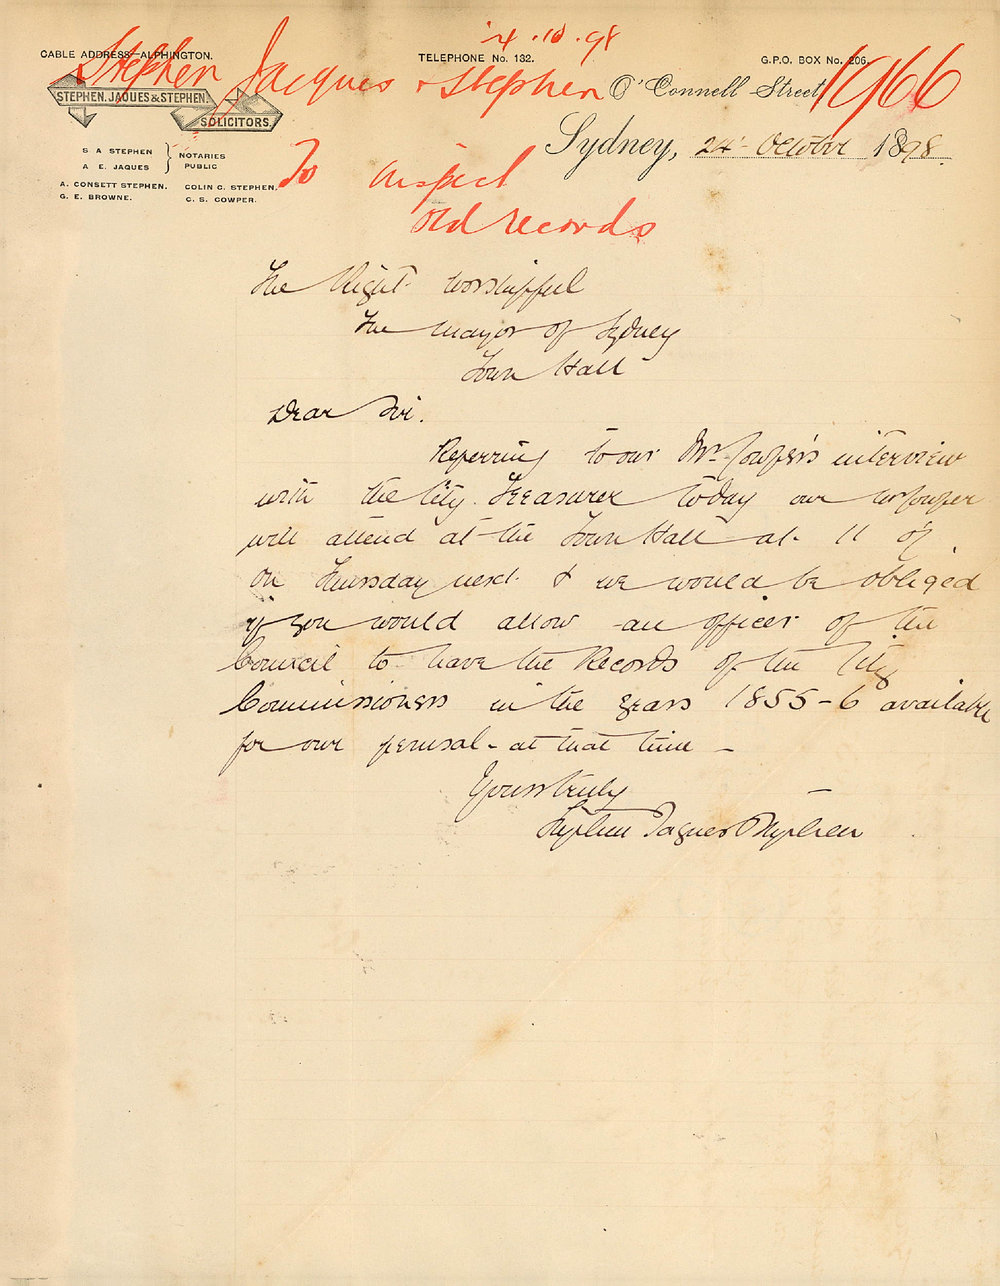 24.10.98
CABLE ADDRESS—ALPHINGTON.
TELEPHONE No. 132.
G.P.O. BOX No. 206.
Stephen Jacques & Stephen
1966
STEPHEN, JAQUES & STEPHEN,
SOLICITORS.
O'Connell Street
Sydney, 24 October 1898.
S A STEPHEN
A E. JAQUES
NOTARIES PUBLIC
A. CONSETT STEPHEN. COLIN C. STEPHEN.
G. E. BROWNE. C. S. COWPER.
To inspect
old records
The Right Worshipful
The Mayor of Sydney
Town Hall
Dear Sir.
Referring to our Mr. Cowper's interview
with the City Treasurer today our Mr Cowper
will attend at the Town Hall at 11 o/c
on Thursday next & we would be obliged
if you would allow an officer of the
Council to have the Records of the City
Commissioners in the years 1855-6 available
for our perusal - at that time -
Yours truly
Stephen Jaques & Stephen